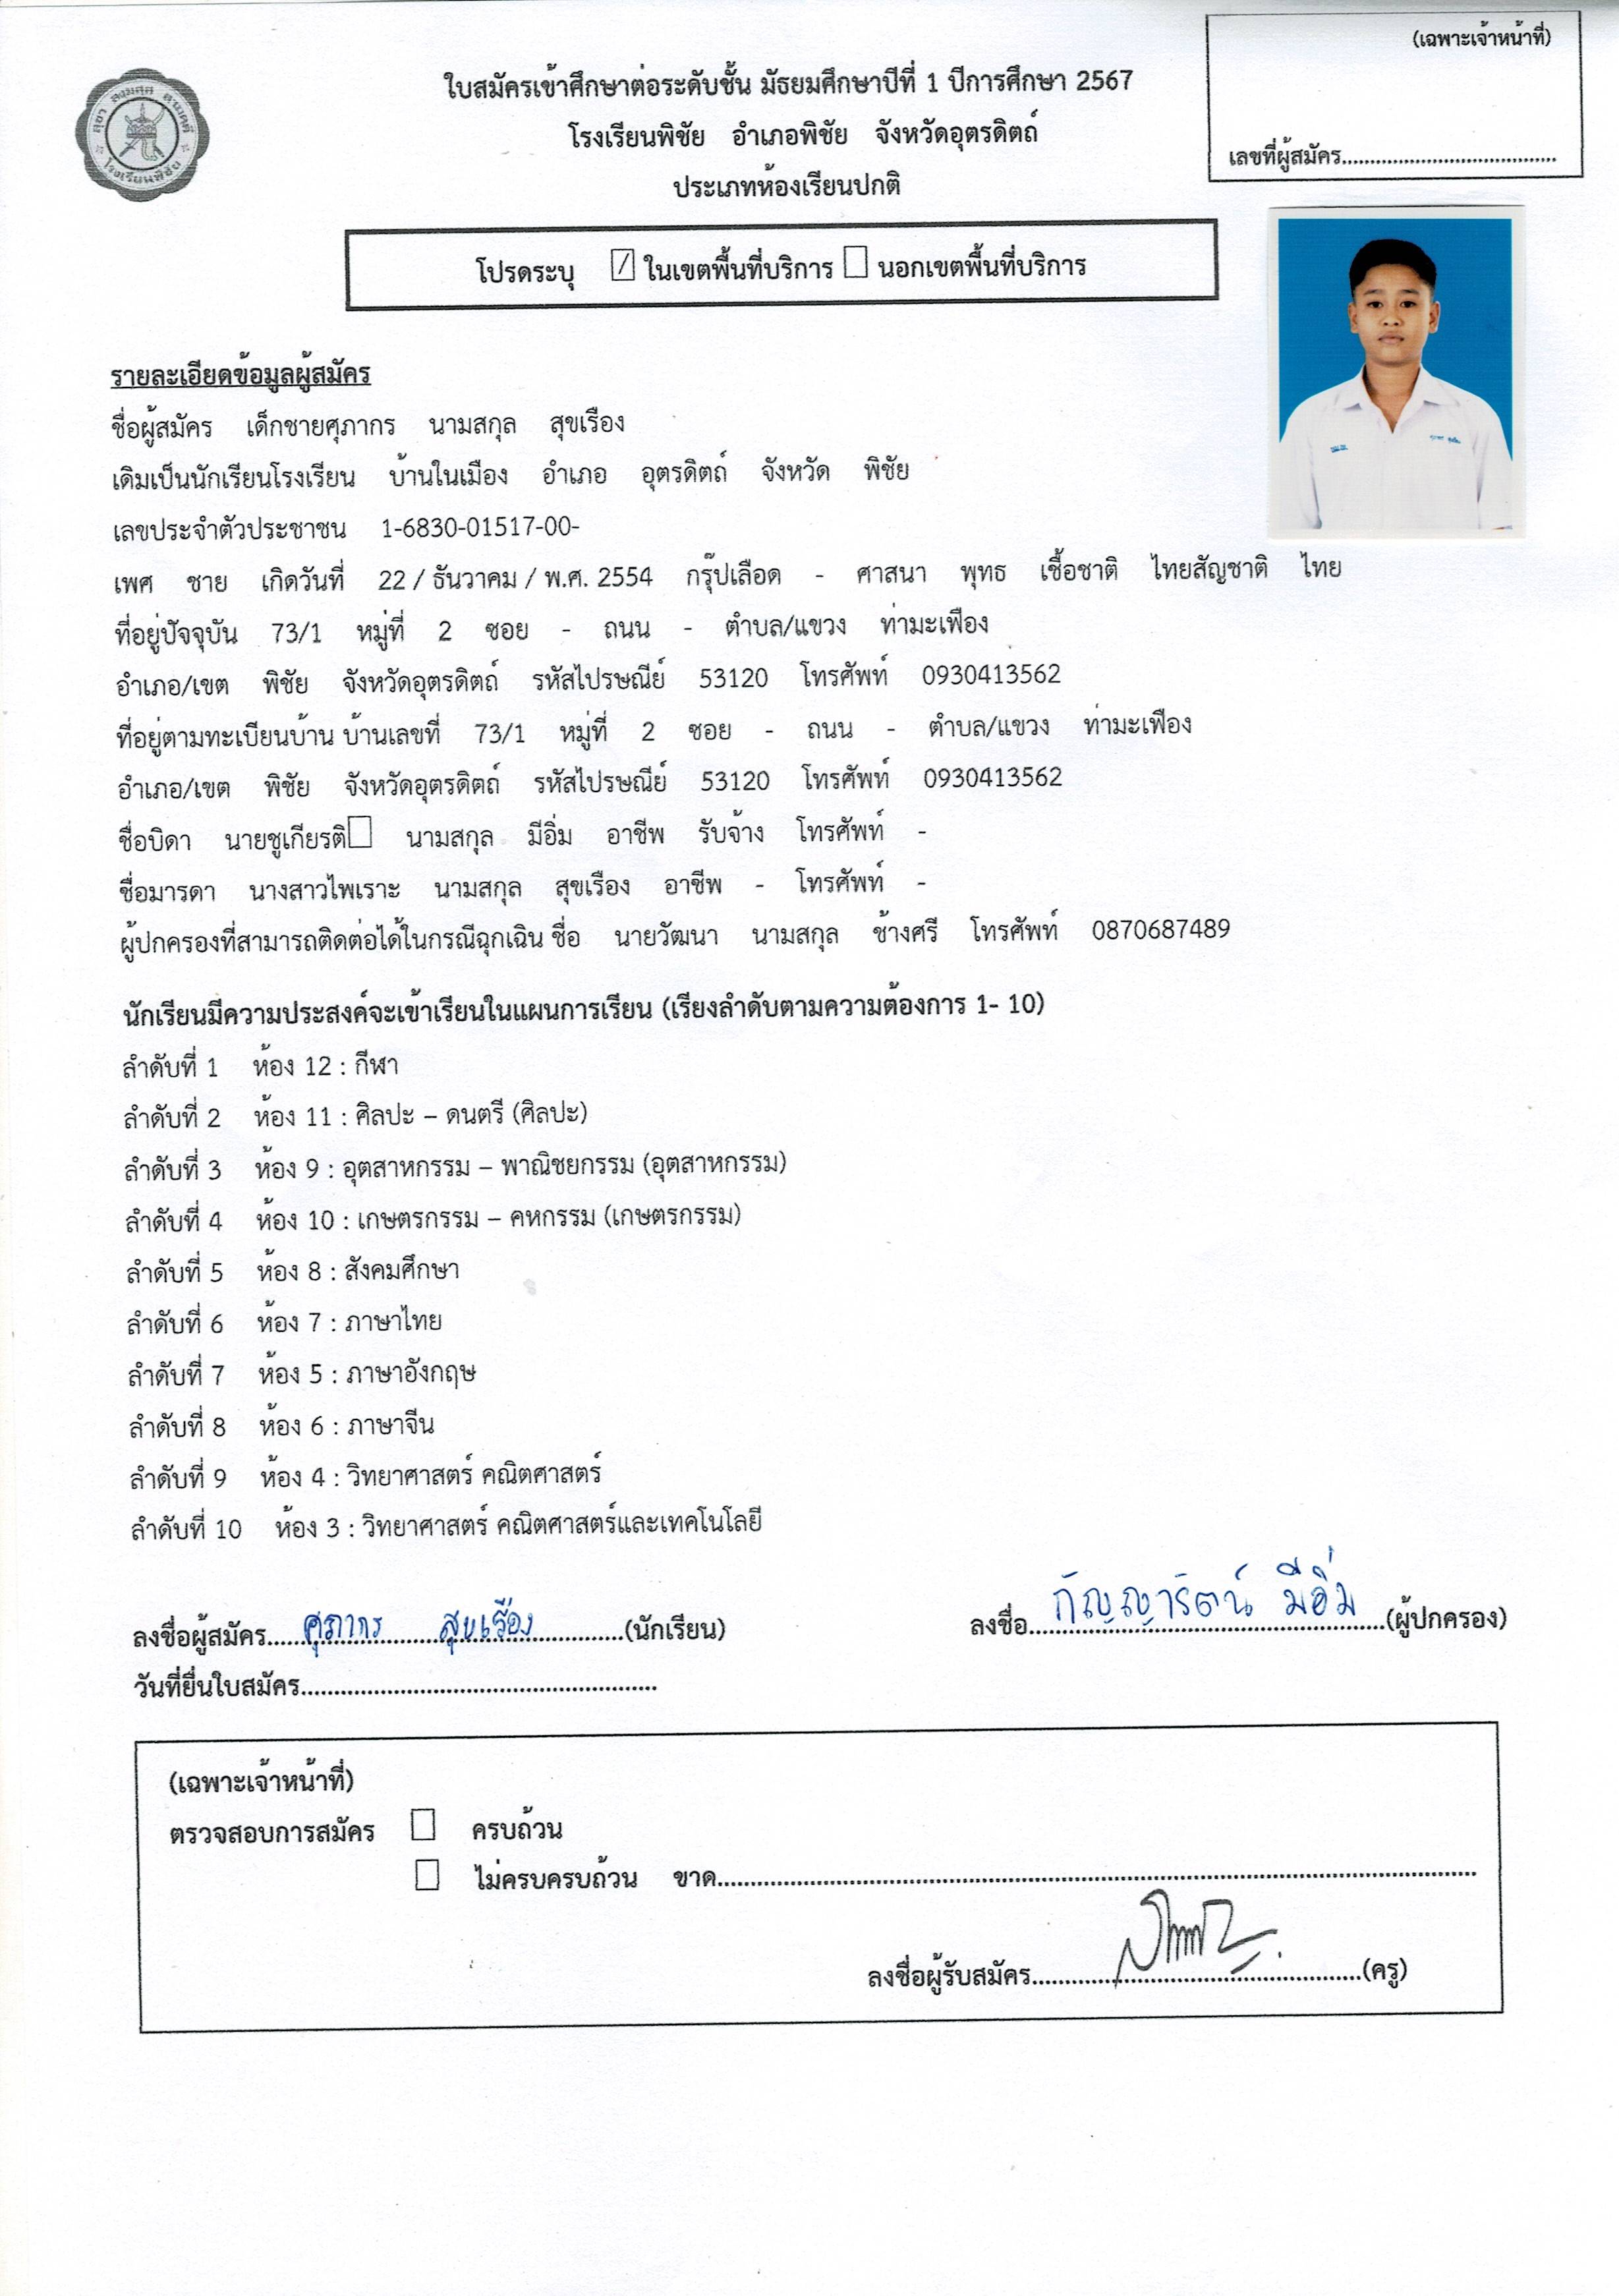 (เฉพาะเจ้าหน้าที่)
เลขที่ผู้สมัคร................................
ใบสมัครเข้าศึกษาต่อระดับชั้น มัธยมศึกษาปีที่ 1 ปีการศึกษา 2567
โรงเรียนพิชัย อำเภอพิชัย จังหวัดอุตรดิตถ์
ประเภทห้องเรียนปกติ
โรงเรียนพิชัย
โปรดระบุ ☑ ในเขตพื้นที่บริการ ☐ นอกเขตพื้นที่บริการ
รายละเอียดข้อมูลผู้สมัคร
ชื่อผู้สมัคร เด็กชายศุภากร นามสกุล สุขเรือง
เดิมเป็นนักเรียนโรงเรียน บ้านในเมือง อำเภอ อุตรดิตถ์ จังหวัด พิชัย
เลขประจำตัวประชาชน 1-6830-01517-00-
เพศ ชาย เกิดวันที่ 22 / ธันวาคม / พ.ศ. 2554 กรุ๊ปเลือด - ศาสนา พุทธ เชื้อชาติ ไทยสัญชาติ ไทย
ที่อยู่ปัจจุบัน 73/1 หมู่ที่ 2 ซอย - ถนน - ตำบล/แขวง ท่ามะเฟือง
อำเภอ/เขต พิชัย จังหวัดอุตรดิตถ์ รหัสไปรษณีย์ 53120 โทรศัพท์ 0930413562
ที่อยู่ตามทะเบียนบ้าน บ้านเลขที่ 73/1 หมู่ที่ 2 ซอย - ถนน - ตำบล/แขวง ท่ามะเฟือง
อำเภอ/เขต พิชัย จังหวัดอุตรดิตถ์ รหัสไปรษณีย์ 53120 โทรศัพท์ 0930413562
ชื่อบิดา นายชูเกียรติ☐ นามสกุล มีอิ่ม อาชีพ รับจ้าง โทรศัพท์ -
ชื่อมารดา นางสาวไพเราะ นามสกุล สุขเรือง อาชีพ - โทรศัพท์ -
ผู้ปกครองที่สามารถติดต่อได้ในกรณีฉุกเฉิน ชื่อ นายวัฒนา นามสกุล ช้างศรี โทรศัพท์ 0870687489
นักเรียนมีความประสงค์จะเข้าเรียนในแผนการเรียน (เรียงลำดับตามความต้องการ 1- 10)
ลำดับที่ 1 ห้อง 12 : กีฬา
ลำดับที่ 2 ห้อง 11 : ศิลปะ – ดนตรี (ศิลปะ)
ลำดับที่ 3 ห้อง 9 : อุตสาหกรรม – พาณิชยกรรม (อุตสาหกรรม)
ลำดับที่ 4 ห้อง 10 : เกษตรกรรม – คหกรรม (เกษตรกรรม)
ลำดับที่ 5 ห้อง 8 : สังคมศึกษา
ลำดับที่ 6 ห้อง 7 : ภาษาไทย
ลำดับที่ 7 ห้อง 5 : ภาษาอังกฤษ
ลำดับที่ 8 ห้อง 6 : ภาษาจีน
ลำดับที่ 9 ห้อง 4 : วิทยาศาสตร์ คณิตศาสตร์
ลำดับที่ 10 ห้อง 3 : วิทยาศาสตร์ คณิตศาสตร์และเทคโนโลยี
ลงชื่อผู้สมัคร....ศุภากร สุขเรือง....(นักเรียน) ลงชื่อ....กัญญารัตน์ มีอิ่ม....(ผู้ปกครอง)
วันที่ยื่นใบสมัคร......................................................
(เฉพาะเจ้าหน้าที่)
ตรวจสอบการสมัคร ☐ ครบถ้วน
☐ ไม่ครบครบถ้วน ขาด................................................................
ลงชื่อผู้รับสมัคร..................................................(ครู)